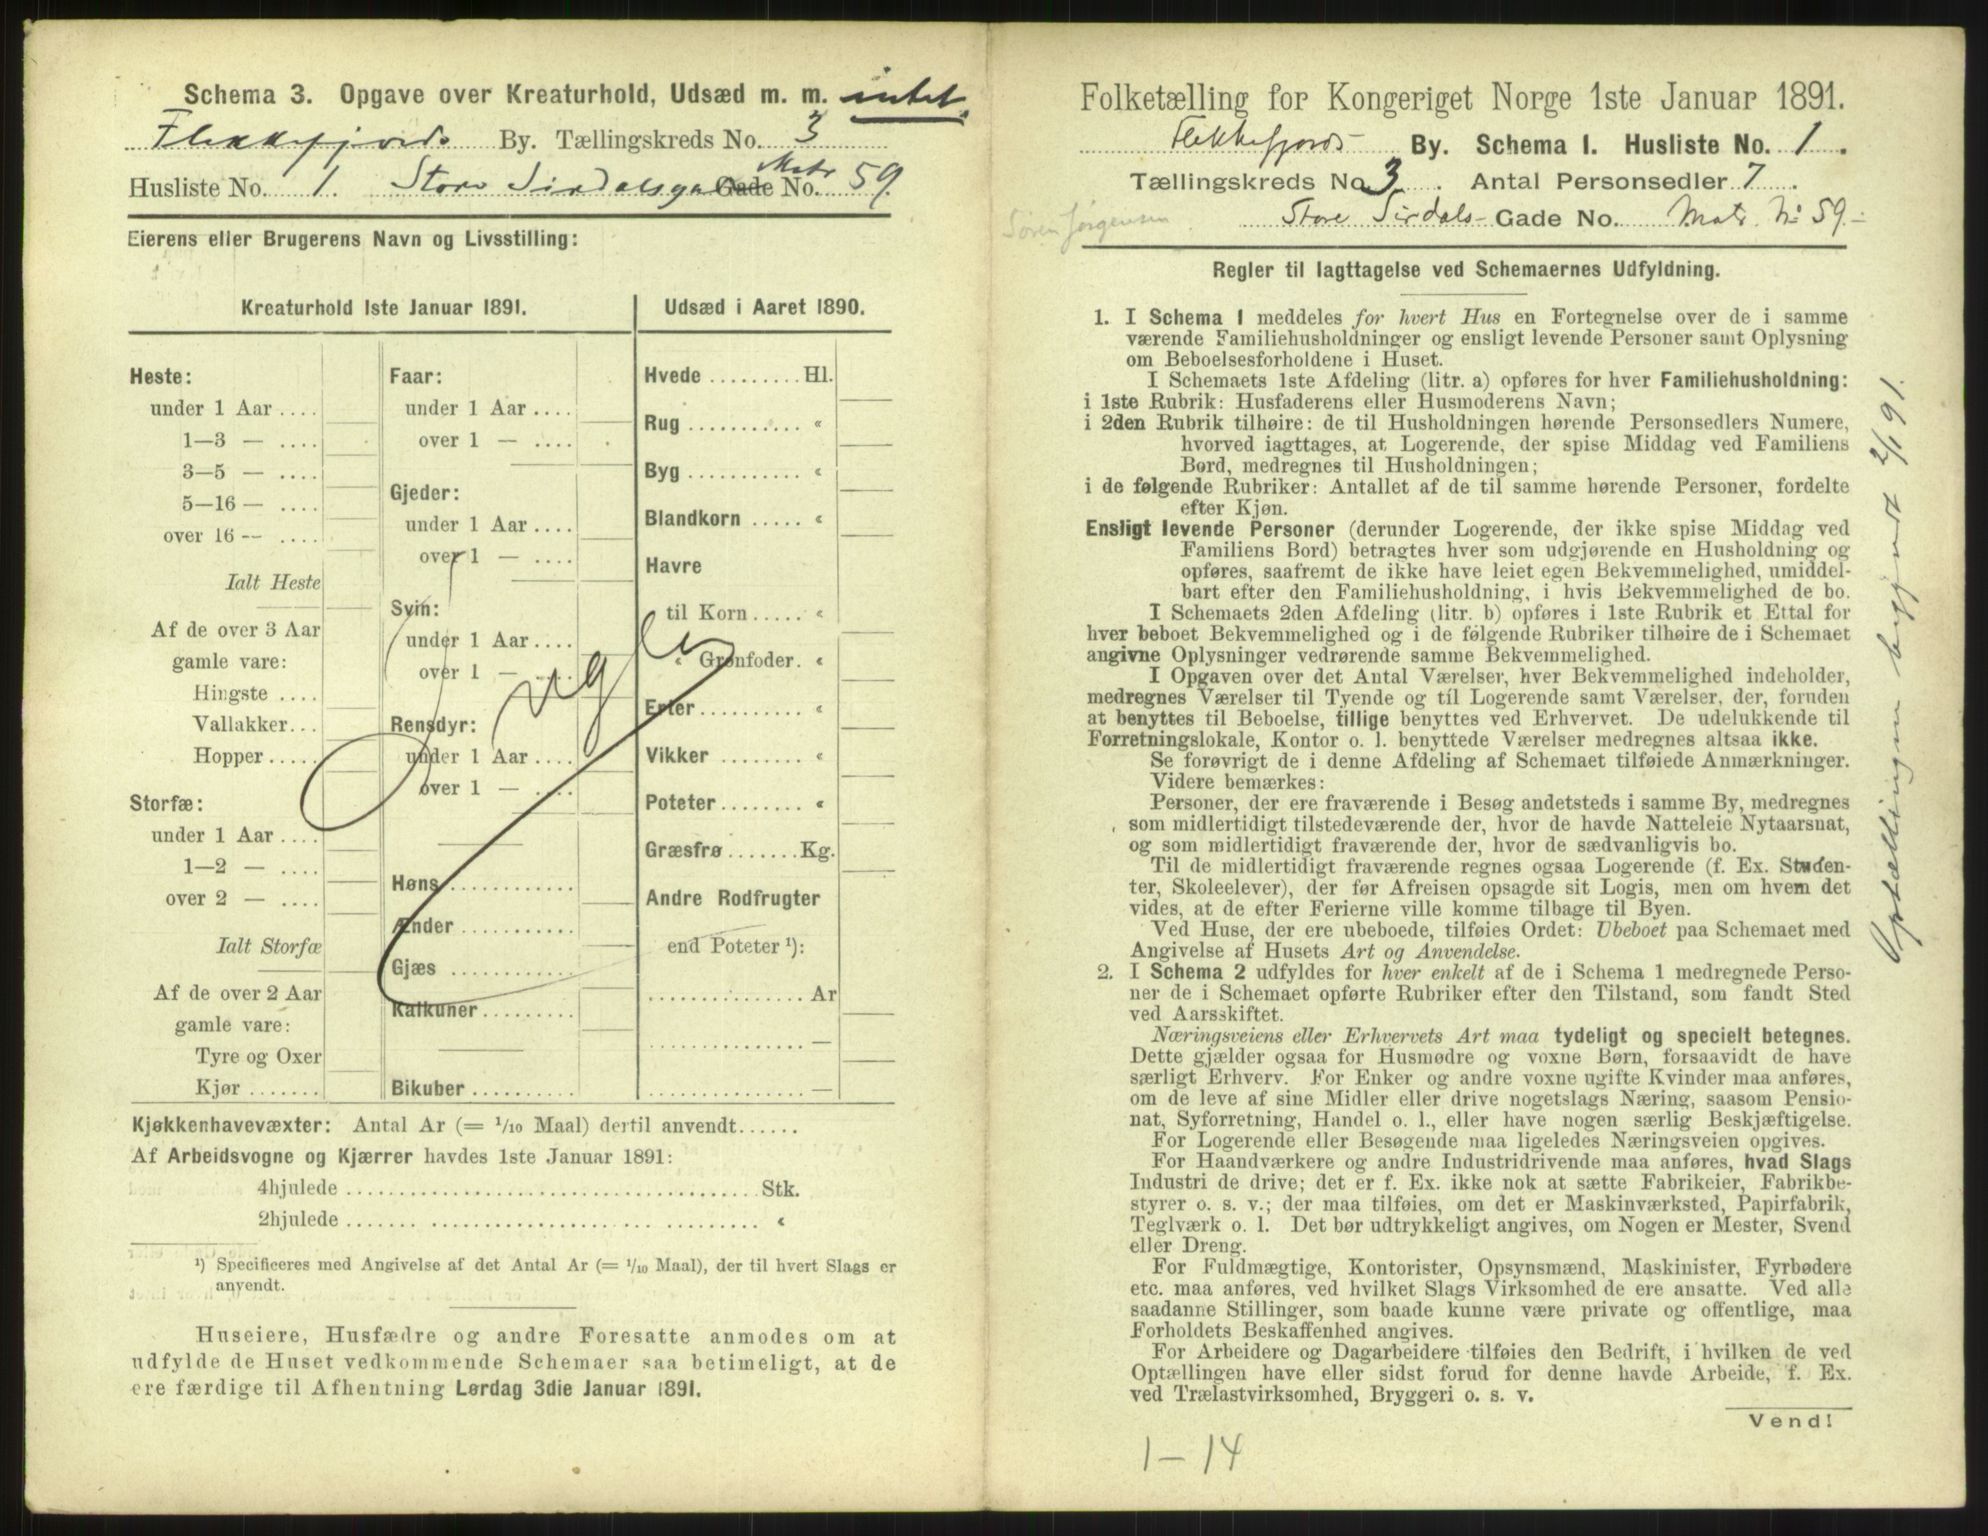 Schema 3. Opgave over Kreaturhold, Udsæd m. m. intet
Flekkefjords By. Tællingskreds No. 3
Husliste No. 1. Store Sirdalsga Gade Matr No. 59.
Eierens eller Brugerens Navn og Livsstilling:
Kreaturhold 1ste Januar 1891.
Heste:
under 1 Aar ....
1—3 — ....
3—5 — ....
5—16 — ....
over 16 — ....
Ialt Heste
Af de over 3 Aar
gamle vare:
Hingste ....
Vallakker...
Hopper.....
Storfæ:
under 1 Aar ....
1—2 — ....
over 2 — ....
Ialt Storfæ
Af de over 2 Aar
gamle vare:
Tyre og Oxer
Kjør .......
Faar:
under 1 Aar ....
over 1 — ....
Gjeder:
under 1 Aar ....
over 1 — ....
Svin:
under 1 Aar ....
over 1 — ....
Rensdyr:
under 1 Aar ....
over 1 — ....
Høns............
Ænder...........
Gjæs ...........
Kalkuner.........
Bikuber..........
Udsæd i Aaret 1890.
Hvede.........Hl.
Rug........... "
Byg........... "
Blandkorn..... "
Havre
til Korn..... "
" Grønfoder. "
Erter.......... "
Vikker ........ "
Poteter........ "
Græsfrø.......Kg.
Andre Rodfrugter
end Poteter ¹):
...............Ar
............... —
............... —
Kjøkkenhavevæxter: Antal Ar (= 1/10 Maal) dertil anvendt......
Af Arbeidsvogne og Kjærrer havdes 1ste Januar 1891:
4hjulede ........................................Stk.
2hjulede ........................................ "
¹) Specificeres med Angivelse af det Antal Ar (= 1/10 Maal), der til hvert Slags er
anvendt.
Huseiere, Husfædre og andre Foresatte anmodes om at
udfylde de Huset vedkommende Schemaer saa betimeligt, at de
ere færdige til Afhentning Lørdag 3die Januar 1891.
Folketælling for Kongeriget Norge 1ste Januar 1891.
Flekkefjords By. Schema I. Husliste No. 1.
Tællingskreds No 3. Antal Personsedler 7.
Søren Jørgensen
Store Sirdals- Gade No. Matr. No 59.-
Regler til Iagttagelse ved Schemaernes Udfyldning.
1. I Schema 1 meddeles for hvert Hus en Fortegnelse over de i samme
værende Familiehusholdninger og ensligt levende Personer samt Oplysning
om Beboelsesforholdene i Huset.
I Schemaets 1ste Afdeling (litr. a) opføres for hver Familiehusholdning:
i 1ste Rubrik: Husfaderens eller Husmoderens Navn;
i 2den Rubrik tilhøire: de til Husholdningen hørende Personsedlers Numere,
hvorved iagttages, at Logerende, der spise Middag ved Familiens
Bord, medregnes til Husholdningen;
i de følgende Rubriker: Antallet af de til samme hørende Personer, fordelte
efter Kjøn.
Ensligt levende Personer (derunder Logerende, der ikke spise Middag ved
Familiens Bord) betragtes hver som udgjørende en Husholdning og
opføres, saafremt de ikke have leiet egen Bekvemmelighed, umiddel-
bart efter den Familiehusholdning, i hvis Bekvemmelighed de bo.
I Schemaets 2den Afdeling (litr. b) opføres i 1ste Rubrik et Ettal for
hver beboet Bekvemmelighed og i de følgende Rubriker tilhøire de i Schemaet
angivne Oplysninger vedrørende samme Bekvemmelighed.
I Opgaven over det Antal Værelser, hver Bekvemmelighed indeholder,
medregnes Værelser til Tyende og til Logerende samt Værelser, der, foruden
at benyttes til Beboelse, tillige benyttes ved Erhvervet. De udelukkende til
Forretningslokale, Kontor o. l. benyttede Værelser medregnes altsaa ikke.
Se forøvrigt de i denne Afdeling af Schemaet tilføiede Anmærkninger.
Videre bemærkes:
Personer, der ere fraværende i Besøg andetsteds i samme By, medregnes
som midlertidigt tilstedeværende der, hvor de havde Natteleie Nytaarsnat,
og som midlertidigt fraværende der, hvor de sædvanligvis bo.
Til de midlertidigt fraværende regnes ogsaa Logerende (f. Ex. Studen-
ter, Skoleelever), der før Afreisen opsagde sit Logis, men om hvem det
vides, at de efter Ferierne ville komme tilbage til Byen.
Ved Huse, der ere ubeboede, tilføies Ordet: Ubeboet paa Schemaet med
Angivelse af Husets Art og Anvendelse.
2. I Schema 2 udfyldes for hver enkelt af de i Schema 1 medregnede Perso-
ner de i Schemaet opførte Rubriker efter den Tilstand, som fandt Sted
ved Aarsskiftet.
Næringsveiens eller Erhvervets Art maa tydeligt og specielt betegnes.
Dette gjælder ogsaa for Husmødre og voxne Børn, forsaavidt de have
særligt Erhverv. For Enker og andre voxne ugifte Kvinder maa anføres,
om de leve af sine Midler eller drive nogetslags Næring, saasom Pensio-
nat, Syforretning, Handel o. l., eller have nogen særlig Beskjæftigelse.
For Logerende eller Besøgende maa ligeledes Næringsveien opgives.
For Haandværkere og andre Industridrivende maa anføres, hvad Slags
Industri de drive; det er f. Ex. ikke nok at sætte Fabrikeier, Fabrikbe-
styrer o. s. v.; der maa tilføies, om det er Maskinværksted, Papirfabrik,
Teglværk o. l. Det bør udtrykkeligt angives, om Nogen er Mester, Svend
eller Dreng.
For Fuldmægtige, Kontorister, Opsynsmænd, Maskinister, Fyrbødere
etc. maa anføres, ved hvilket Slags Virksomhed de ere ansatte. Ved alle
saadanne Stillinger, som baade kunne være private og offentlige, maa
Forholdets Beskaffenhed angives.
For Arbeidere og Dagarbeidere tilføies den Bedrift, i hvilken de ved
Optællingen have eller sidst forud for denne havde Arbeide, f. Ex.
ved Trælastvirksomhed, Bryggeri o. s. v.
Vend!
1—14
Optællingen begyndt 2/1 91.